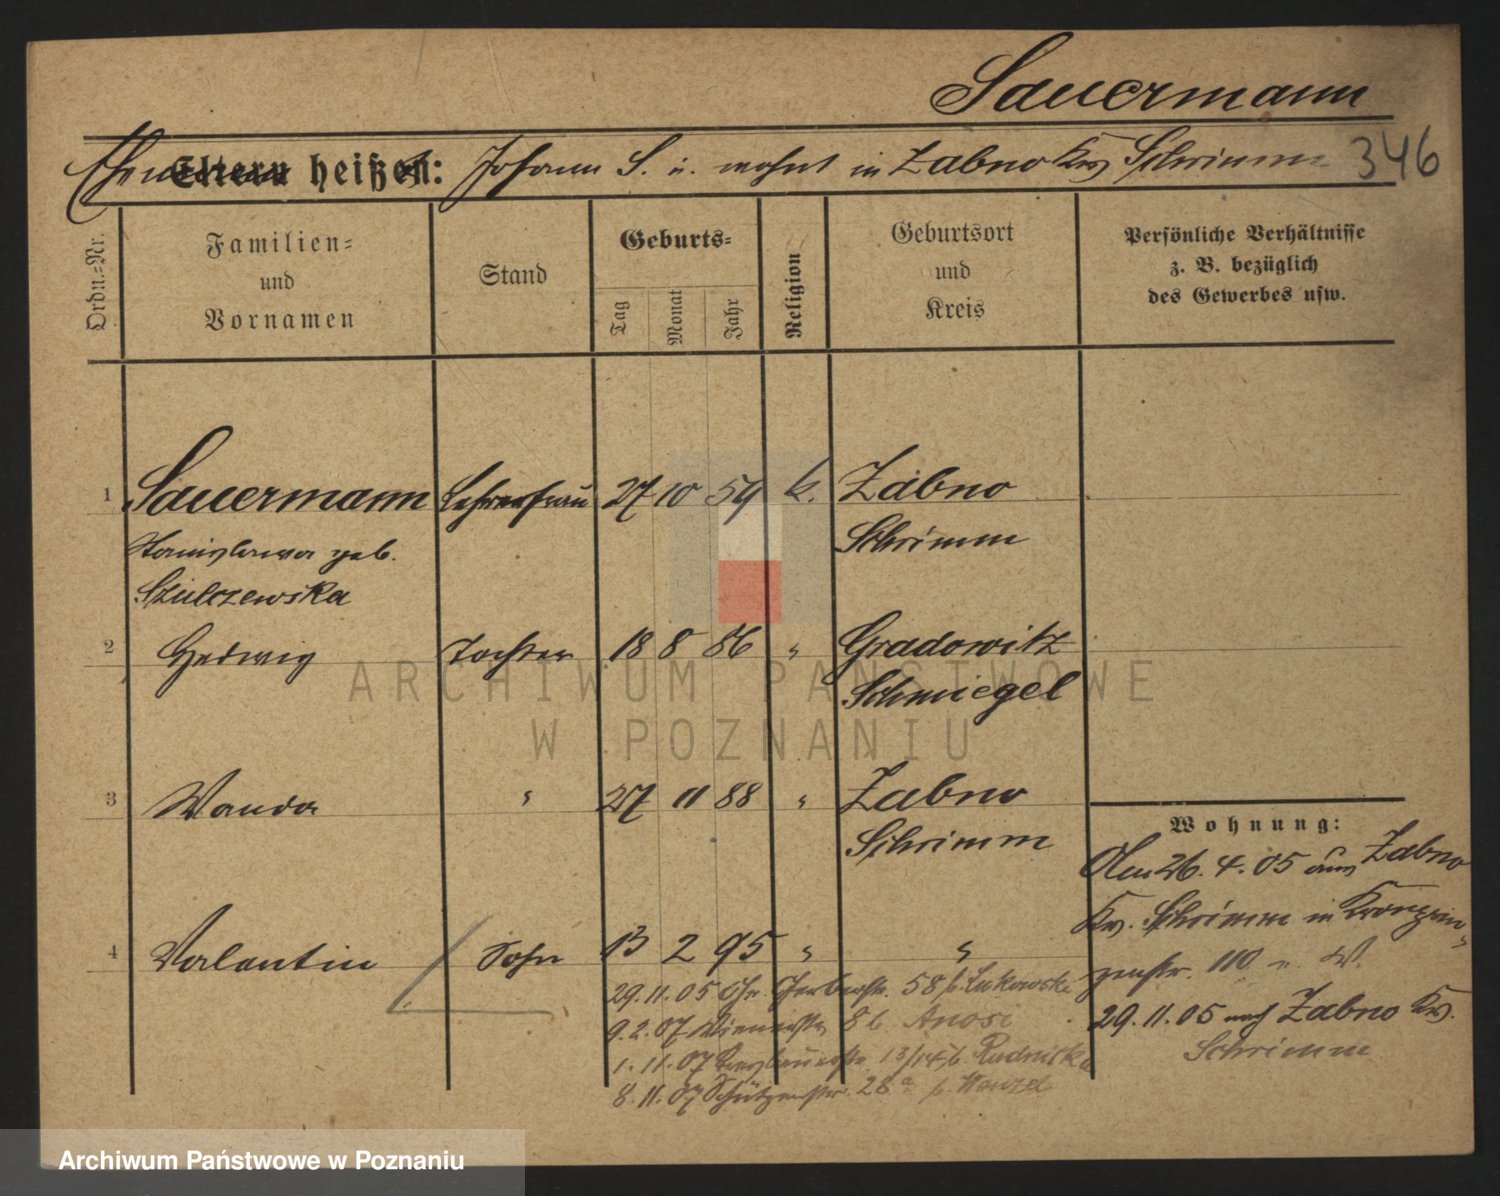 Sauermann
Ehemann heißt: Johann S. u. wohnt in Zabno Kr. Schrimm 346
Ordn.=Nr.
Familien=
und
Vornamen
Stand
Geburts=
Tag
Monat
Jahr
Religion
Geburtsort
und
Kreis
Persönliche Verhältnisse
z. B. bezüglich
des Gewerbes usw.
1 Sauermann Lehrerfrau 27 10 59 k. Zabno
Stanislawa geb. Schrimm
Szulczewska
2 Hedwig Tochter 18 8 86 " Gradowitz
Schmiegel
ARCHIWUM PAŃSTWOWE
W POZNANIU
3 Wanda " 27 11 88 " Zabno
Schrimm
Wohnung:
Am 26. 4. 05 aus Zabno
Kr. Schrimm in Kronprin-
zenstr. 110 u. W.
29. 11. 05 nach Zabno Kr.
Schrimm
4 Valentin Sohn 13 2 95 " "
29. 11. 05 Gerberstr. 58 b. Lukowski
9. 2. 07 Wienerstr. 8 b. Anosi
1. 11. 07 13/14 b. Rudnicka
8. 11. 07 Schützenstr. 28a b. Wenzel
Archiwum Państwowe w Poznaniu